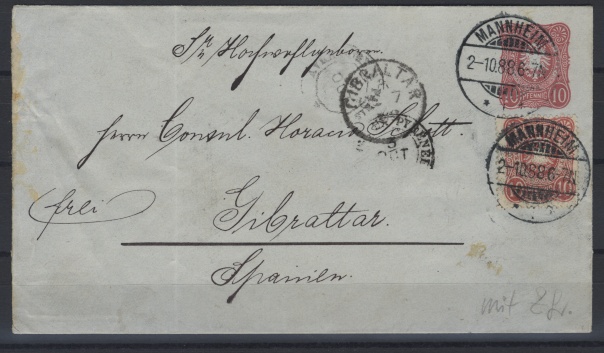 Sr Hochwohlgeboren
MANNHEIM
2-10.88.6-7N
10 10
GIBRALTAR
7
PYRENEES
OCT
Herrn Consul Horace
MANNHEIM
2-10.88.6-7N
10
frei
Gibraltar
Spanien.
mit Zfr.